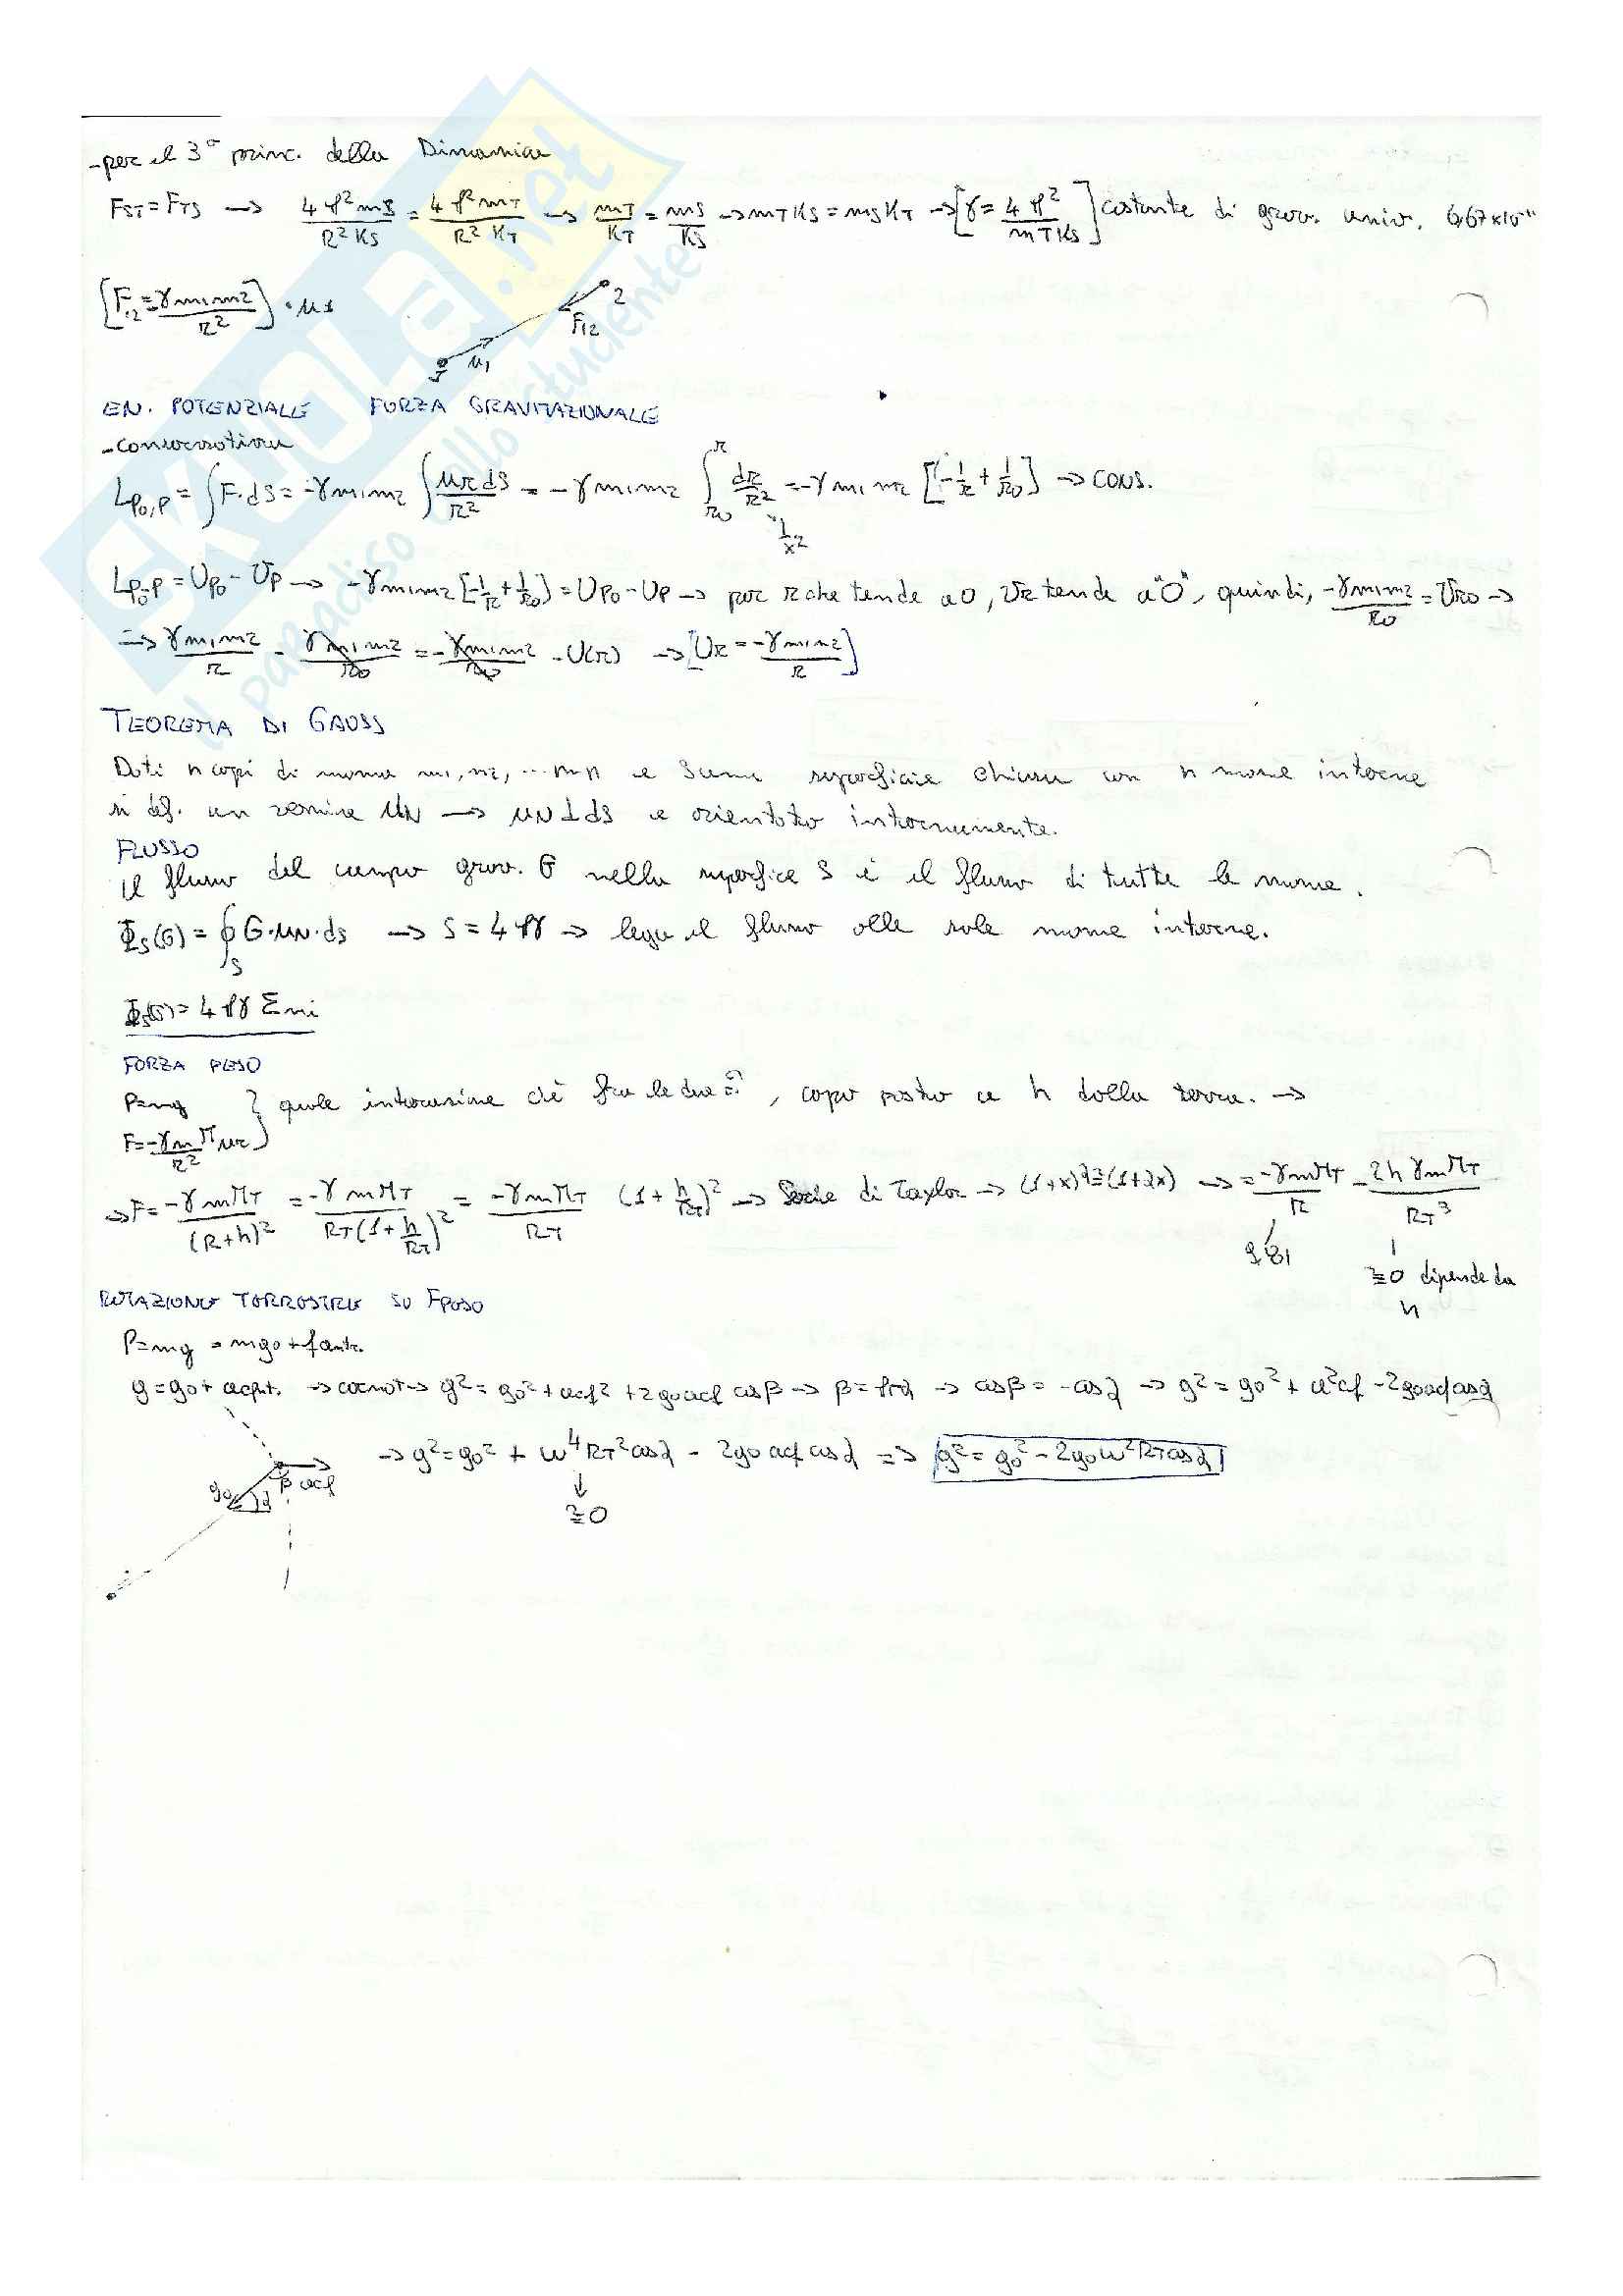 - per il 3° princ. della Dinamica
FST = FTS → 4π²mS/R²KS = 4π²mT/R²KT → mT/KT = mS/KS → mTKS = mSKT → [γ = 4π²/mTKS] costante di grav. univ. 6,67×10⁻¹¹
[F12 = γm1m2/R²] · u1
2
F12
u1
EN. POTENZIALE FORZA GRAVITAZIONALE
- conservativa
LP0,P = ∫F·dS = -γm1m2 ∫uR dS/R² = -γm1m2 ∫ dR/R² = -γm1m2 [-1/R + 1/R0] → CONS.
1/x²
LP0-P = UP0 - UP → -γm1m2[-1/R + 1/R0) = UP0 - UP → per R che tende a 0, UR tende a "0", quindi, -γm1m2/R0 = UR0 →
→ γm1m2/R - γm1m2/R0 = -γm1m2/R0 - U(R) → [UR = -γm1m2/R]
TEOREMA DI GAUSS
Dati n copi di masse m1, m2, ... mn e S una superficie chiusa con n masse interne
si def. un versore uN → uN ⊥ dS e orientato internamente.
FLUSSO
Il flusso del campo grav. G nella superfice S è il flusso di tutte le masse.
ΦS(G) = ∮S G·uN·dS → S = 4πγ → lega il flusso alle sole masse interne.
ΦS(G) = 4πγ Σmi
FORZA PESO
P=mg } quale interazione c'è fra le due?, copo posto a h dalla terra. →
F = -γmM uR/R²
→ F = -γmMT/(R+h)² = -γmMT/RT(1+h/RT)² = -γmMT/RT (1+h/RT)² → Serie di Taylor → (1+x)² ≅ (1+2x) → = -γmMT/R - 2hγmMT/RT³
≅0 dipende da h
ROTAZIONE TERRESTRE SU FPESO
P=mg = mg0 + fcentr.
g = g0 + acfut. → carnot → g² = g0² + acf² + 2g0acf cosβ → β = π-λ → cosβ = -cosλ → g² = g0² + a²cf - 2g0acfcosλ
→ g² = g0² + ω⁴RT²cosλ - 2g0 acf cosλ => g² = g0² - 2g0ω²RTcosλ
≅0
g0
λ
β acf